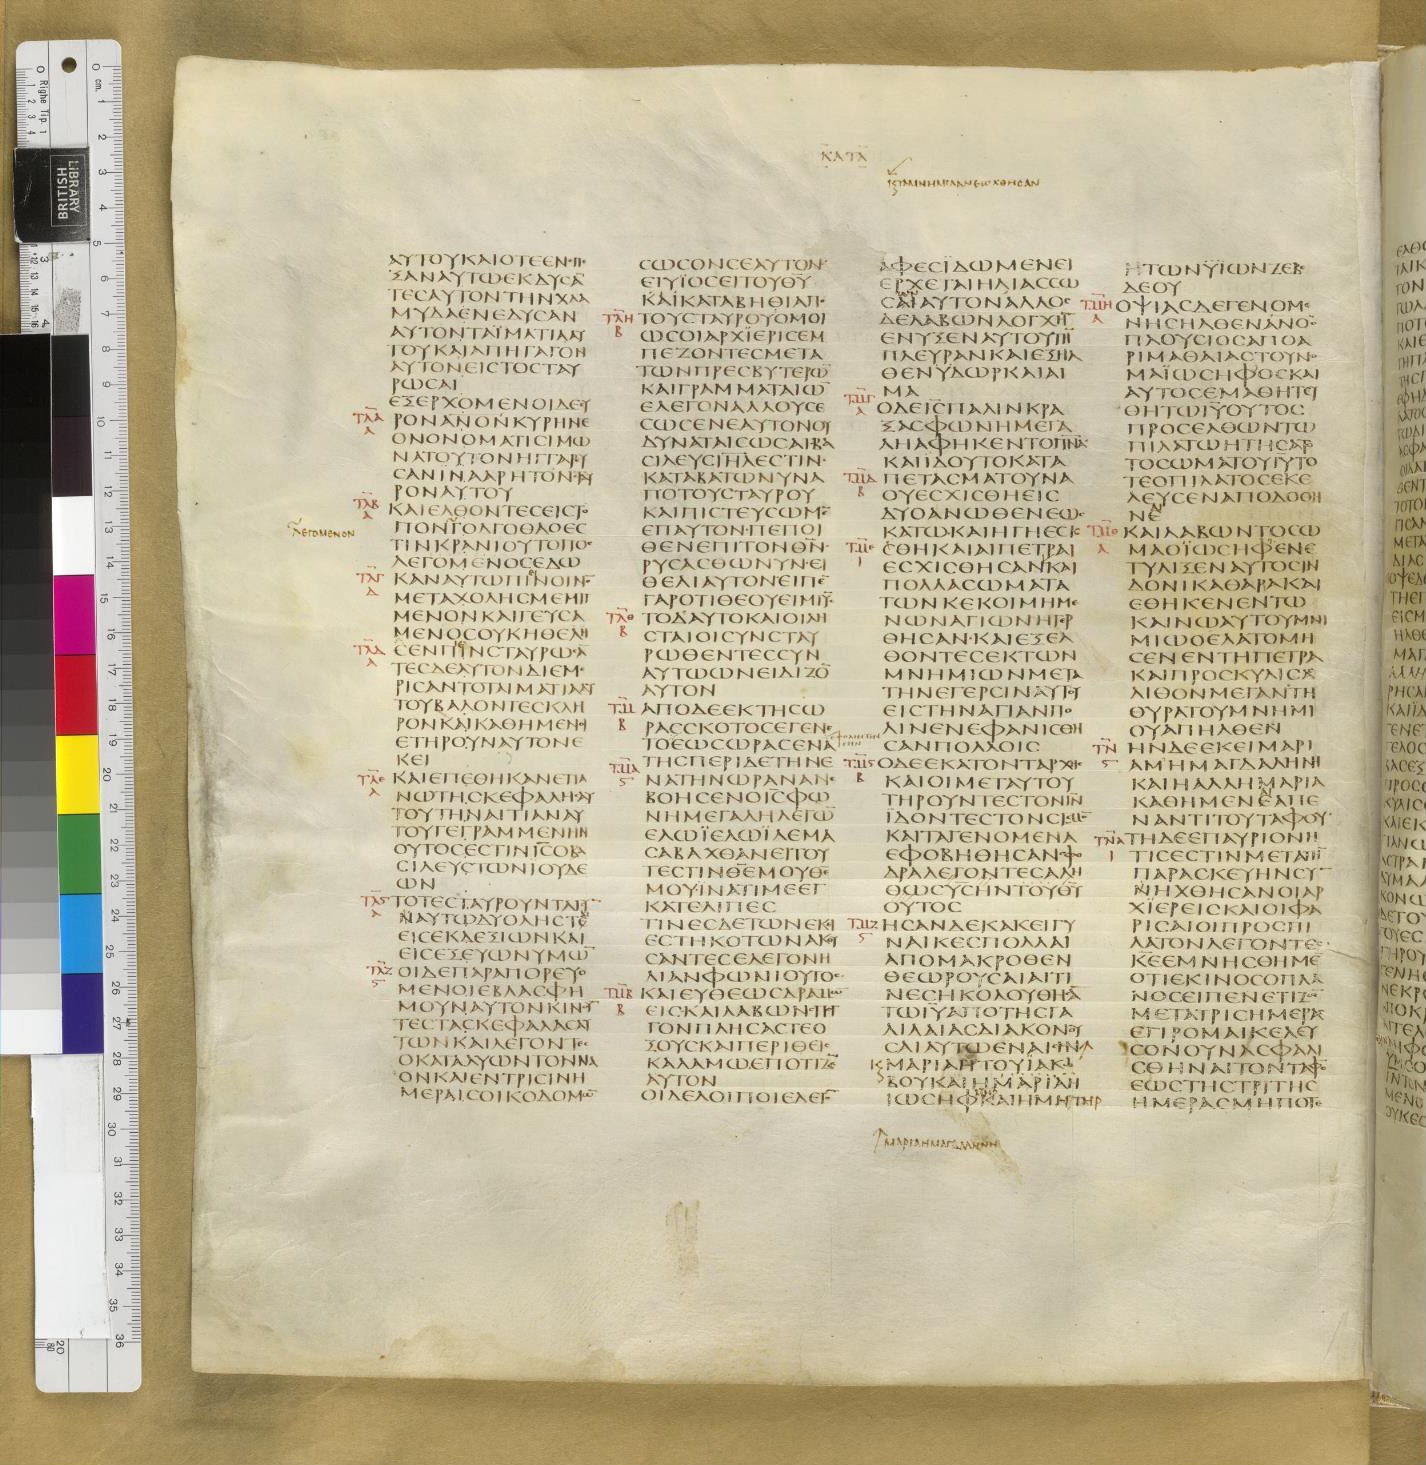 ΚΑΤΑ
ΑΥΤΟΥΚΑΙΟΤΕΕΝΕΠΕ
ΞΑΝΑΥΤΩΕΚΔΥΣΑ
ΤΕΣΑΥΤΟΝΤΗΝΧΛΑ
ΜΥΔΑΕΝΕΔΥΣΑΝ
ΑΥΤΟΝΤΑΪΜΑΤΙΑΑΥ
ΤΟΥΚΑΙΑΠΗΓΑΓΟΝ
ΑΥΤΟΝΕΙΣΤΟΣΤΑΥ
ΡΩΣΑΙ
ΕΞΕΡΧΟΜΕΝΟΙΔΕΥ
ΡΟΝΑΝΟΝΚΥΡΗΝΕ
ΟΝΟΝΟΜΑΤΙΣΙΜΩ
ΝΑΤΟΥΤΟΝΗΓΓΑΡΥ
ΣΑΝΙΝΑΑΡΗΤΟΝΣΤΑΥ
ΡΟΝΑΥΤΟΥ
ΚΑΙΕΛΘΟΝΤΕΣΕΙΣΤΟ
ΠΟΝΓΟΛΓΟΘΑΟΕΣ
ΤΙΝΚΡΑΝΙΟΥΤΟΠΟΣ
ΛΕΓΟΜΕΝΟΣΕΔΩ
ΚΑΝΑΥΤΩΠΙΝΟΙΝΟΝ
ΜΕΤΑΧΟΛΗΣΜΕΜΙΓ
ΜΕΝΟΝΚΑΙΓΕΥΣΑ
ΜΕΝΟΣΟΥΚΗΘΕΛΗ
ΣΕΝΠΙΝΣΤΑΥΡΩΣΑ
ΤΕΣΔΕΑΥΤΟΝΔΙΕΜΕ
ΡΙΣΑΝΤΟΤΑΙΜΑΤΙΑΑΥ
ΤΟΥΒΑΛΟΝΤΕΣΚΛΗ
ΡΟΝΚΑΙΚΑΘΗΜΕΝΟΙ
ΕΤΗΡΟΥΝΑΥΤΟΝΕ
ΚΕΙ
ΚΑΙΕΠΕΘΗΚΑΝΕΠΑ
ΝΩΤΗΣΚΕΦΑΛΗΣΑΥ
ΤΟΥΤΗΝΑΙΤΙΑΝΑΥ
ΤΟΥΓΕΓΡΑΜΜΕΝΗΝ
ΟΥΤΟΣΕΣΤΙΝΙΣΟΒΑ
ΣΙΛΕΥΣΤΩΝΙΟΥΔΕ
ΩΝ
ΤΟΤΕΣΤΑΥΡΟΥΝΤΑΙΣΥ
ΝΑΥΤΩΔΥΟΛΗΣΤΕ
ΕΙΣΕΚΔΕΞΙΩΝΚΑΙ
ΕΙΣΕΞΕΥΩΝΥΜΩΝ
ΟΙΔΕΠΑΡΑΠΟΡΕΥΟ
ΜΕΝΟΙΕΒΛΑΣΦΗ
ΜΟΥΝΑΥΤΟΝΚΙΝΟΥΝ
ΤΕΣΤΑΣΚΕΦΑΛΑΣΑΥ
ΤΩΝΚΑΙΛΕΓΟΝΤΕΣ
ΟΚΑΤΑΛΥΩΝΤΟΝΝΑ
ΟΝΚΑΙΕΝΤΡΙΣΙΝΗ
ΜΕΡΑΙΣΟΙΚΟΔΟΜΩΝ
ΛΕΓΟΜΕΝΟΝ
ΣΩΣΟΝΣΕΑΥΤΟΝ
ΕΙΥΪΟΣΕΙΤΟΥΘΥ
ΚΑΙΚΑΤΑΒΗΘΙΑΠΟ
ΤΟΥΣΤΑΥΡΟΥΟΜΟΙ
ΩΣΟΙΑΡΧΙΕΡΙΣΕΜ
ΠΕΖΟΝΤΕΣΜΕΤΑ
ΤΩΝΠΡΕΣΒΥΤΕΡΩ
ΚΑΙΓΡΑΜΜΑΤΑΙΩΝ
ΕΛΕΓΟΝΑΛΛΟΥΣΕ
ΣΩΣΕΝΕΑΥΤΟΝΟΥ
ΔΥΝΑΤΑΙΣΩΣΑΙΒΑ
ΣΙΛΕΥΣΙΗΛΕΣΤΙΝ
ΚΑΤΑΒΑΤΩΝΥΝΑ
ΠΟΤΟΥΣΤΑΥΡΟΥ
ΚΑΙΠΙΣΤΕΥΣΩΜΕΝ
ΕΠΑΥΤΟΝΠΕΠΟΙ
ΘΕΝΕΠΙΤΟΝΘΝ
ΡΥΣΑΣΘΩΝΥΝΕΙ
ΘΕΛΙΑΥΤΟΝΕΙΠΕ
ΓΑΡΟΤΙΘΕΟΥΕΙΜΙΥΣ
ΤΟΔΑΥΤΟΚΑΙΟΙΛΗ
ΣΤΑΙΟΙΣΥΝΣΤΑΥ
ΡΩΘΕΝΤΕΣΣΥΝ
ΑΥΤΩΩΝΕΙΔΙΖΟ
ΑΥΤΟΝ
ΑΠΟΔΕΕΚΤΗΣΩ
ΡΑΣΣΚΟΤΟΣΕΓΕΝΕ
ΤΟΕΩΣΩΡΑΣΕΝΑ
ΤΗΣΠΕΡΙΔΕΤΗΝΕ
ΝΑΤΗΝΩΡΑΝΑΝΕ
ΒΟΗΣΕΝΟΙΣΦΩ
ΝΗΜΕΓΑΛΗΛΕΓΩ
ΕΛΩΪΕΛΩΪΛΕΜΑ
ΣΑΒΑΧΘΑΝΕΙΤΟΥ
ΤΕΣΤΙΝΘΕΜΟΥΘΕ
ΜΟΥΙΝΑΤΙΜΕΕΓ
ΚΑΤΕΛΙΠΕΣ
ΤΙΝΕΣΔΕΤΩΝΕΚΙ
ΕΣΤΗΚΟΤΩΝΑΚΟΥ
ΣΑΝΤΕΣΕΛΕΓΟΝΗ
ΛΙΑΝΦΩΝΙΟΥΤΟΣ
ΚΑΙΕΥΘΕΩΣΔΡΑΜΩ
ΕΙΣΚΑΙΛΑΒΩΝΣΠΟΓ
ΓΟΝΠΛΗΣΑΣΤΕΟ
ΞΟΥΣΚΑΙΠΕΡΙΘΕΙΣ
ΚΑΛΑΜΩΕΠΟΤΙΖΕ
ΑΥΤΟΝ
ΟΙΔΕΛΟΙΠΟΙΕΛΕΓ
ΑΦΕΣΪΔΩΜΕΝΕΙ
ΕΡΧΕΤΑΙΗΛΙΑΣΣΩ
ΣΑΙΑΥΤΟΝΑΛΛΟΣ
ΔΕΛΑΒΩΝΛΟΓΧΗ
ΕΝΥΞΕΝΑΥΤΟΥΤΗ
ΠΛΕΥΡΑΝΚΑΙΕΞΗΛ
ΘΕΝΥΔΩΡΚΑΙΑΙ
ΜΑ
ΟΔΕΙΣΠΑΛΙΝΚΡΑ
ΞΑΣΦΩΝΗΜΕΓΑ
ΛΗΑΦΗΚΕΝΤΟΠΝΑ
ΚΑΙΪΔΟΥΤΟΚΑΤΑ
ΠΕΤΑΣΜΑΤΟΥΝΑ
ΟΥΕΣΧΙΣΘΗΕΙΣ
ΔΥΟΑΝΩΘΕΝΕΩΣ
ΚΑΤΩΚΑΙΗΓΗΕΣΙ
ΣΘΗΚΑΙΑΙΠΕΤΡΑΙ
ΕΣΧΙΣΘΗΣΑΝΚΑΙ
ΠΟΛΛΑΣΩΜΑΤΑ
ΤΩΝΚΕΚΟΙΜΗΜΕ
ΝΩΝΑΓΙΩΝΗΓΕΡ
ΘΗΣΑΝΚΑΙΕΞΕΛ
ΘΟΝΤΕΣΕΚΤΩΝ
ΜΝΗΜΙΩΝΜΕΤΑ
ΤΗΝΕΓΕΡΣΙΝΑΥΤΟΥ
ΕΙΣΤΗΝΑΓΙΑΝΠΟ
ΛΙΝΕΝΕΦΑΝΙΣΘΗ
ΣΑΝΠΟΛΛΟΙΣ
ΟΔΕΕΚΑΤΟΝΤΑΡΧΗΣ
ΚΑΙΟΙΜΕΤΑΥΤΟΥ
ΤΗΡΟΥΝΤΕΣΤΟΝΙΝ
ΪΔΟΝΤΕΣΤΟΝΣΙΣΜΟ
ΚΑΙΤΑΓΕΝΟΜΕΝΑ
ΕΦΟΒΗΘΗΣΑΝΣΦΟ
ΔΡΑΛΕΓΟΝΤΕΣΑΛΗ
ΘΩΣΥΣΗΝΤΟΥΘΥ
ΟΥΤΟΣ
ΗΣΑΝΔΕΚΑΚΕΙΓΥ
ΝΑΙΚΕΣΠΟΛΛΑΙ
ΑΠΟΜΑΚΡΟΘΕΝ
ΘΕΩΡΟΥΣΑΙΑΙΤΙ
ΝΕΣΗΚΟΛΟΥΘΗΣΑ
ΤΩΙΥΑΠΟΤΗΣΓΑ
ΛΙΛΑΙΑΣΔΙΑΚΟΝΟΥ
ΣΑΙΑΥΤΩΕΝΑΙΣΗΝ
ΜΑΡΙΑΗΤΟΥΪΑΚΩ
ΒΟΥΚΑΙΗΜΑΡΙΑΗ
ΙΩΣΗΦΚΑΙΗΜΗΤΗΡ
ΜΑΡΙΑΗΜΑΓΔΑΛΗΝΗ
ΤΩΝΫΙΩΝΖΕΒΕ
ΔΕΟΥ
ΟΨΙΑΣΔΕΓΕΝΟΜΕ
ΝΗΣΗΛΘΕΝΑΝΟΣ
ΠΛΟΥΣΙΟΣΑΠΟΑ
ΡΙΜΑΘΑΙΑΣΤΟΥΝΟ
ΜΑΪΩΣΗΦΟΣΚΑΙ
ΑΥΤΟΣΕΜΑΘΗΤΕΥ
ΘΗΤΩΙΥΟΥΤΟΣ
ΠΡΟΣΕΛΘΩΝΤΩ
ΠΙΛΑΤΩΗΤΗΣΑΤΟ
ΤΟΣΩΜΑΤΟΥΙΥΤΟ
ΤΕΟΠΙΛΑΤΟΣΕΚΕ
ΛΕΥΣΕΝΑΠΟΔΟΘΗ
ΝΕ
ΚΑΙΛΑΒΩΝΤΟΣΩ
ΜΑΟΪΩΣΗΦΕΝΕ
ΤΥΛΙΞΕΝΑΥΤΟΣΙΝ
ΔΟΝΙΚΑΘΑΡΑΚΑΙ
ΕΘΗΚΕΝΕΝΤΩ
ΚΑΙΝΩΑΥΤΟΥΜΝΗ
ΜΙΩΟΕΛΑΤΟΜΗ
ΣΕΝΕΝΤΗΠΕΤΡΑ
ΚΑΙΠΡΟΣΚΥΛΙΣΑΣ
ΛΙΘΟΝΜΕΓΑΝΤΗ
ΘΥΡΑΤΟΥΜΝΗΜΙ
ΟΥΑΠΗΛΘΕΝ
ΗΝΔΕΕΚΕΙΜΑΡΙ
ΑΜΗΜΑΓΔΑΛΗΝΗ
ΚΑΙΗΑΛΛΗΜΑΡΙΑ
ΚΑΘΗΜΕΝΕΑΠΕ
ΝΑΝΤΙΤΟΥΤΑΦΟΥ
ΤΗΔΕΕΠΑΥΡΙΟΝΗ
ΤΙΣΕΣΤΙΝΜΕΤΑΤΗ
ΠΑΡΑΣΚΕΥΗΝΣΥ
ΝΗΧΘΗΣΑΝΟΙΑΡ
ΧΙΕΡΕΙΣΚΑΙΟΙΦΑ
ΡΙΣΑΙΟΙΠΡΟΣΠΙ
ΛΑΤΟΝΛΕΓΟΝΤΕΣ
ΚΕΕΜΝΗΣΘΗΜΕ
ΟΤΙΕΚΙΝΟΣΟΠΛΑ
ΝΟΣΕΙΠΕΝΕΤΙΖΩ
ΜΕΤΑΤΡΙΣΗΜΕΡΑΣ
ΕΓΙΡΟΜΑΙΚΕΛΕΥ
ΣΟΝΟΥΝΑΣΦΑΛΙ
ΣΘΗΝΑΙΤΟΝΤΑΦΟ
ΕΩΣΤΗΣΤΡΙΤΗΣ
ΗΜΕΡΑΣΜΗΠΟΤΕ
BRITISH
LIBRARY